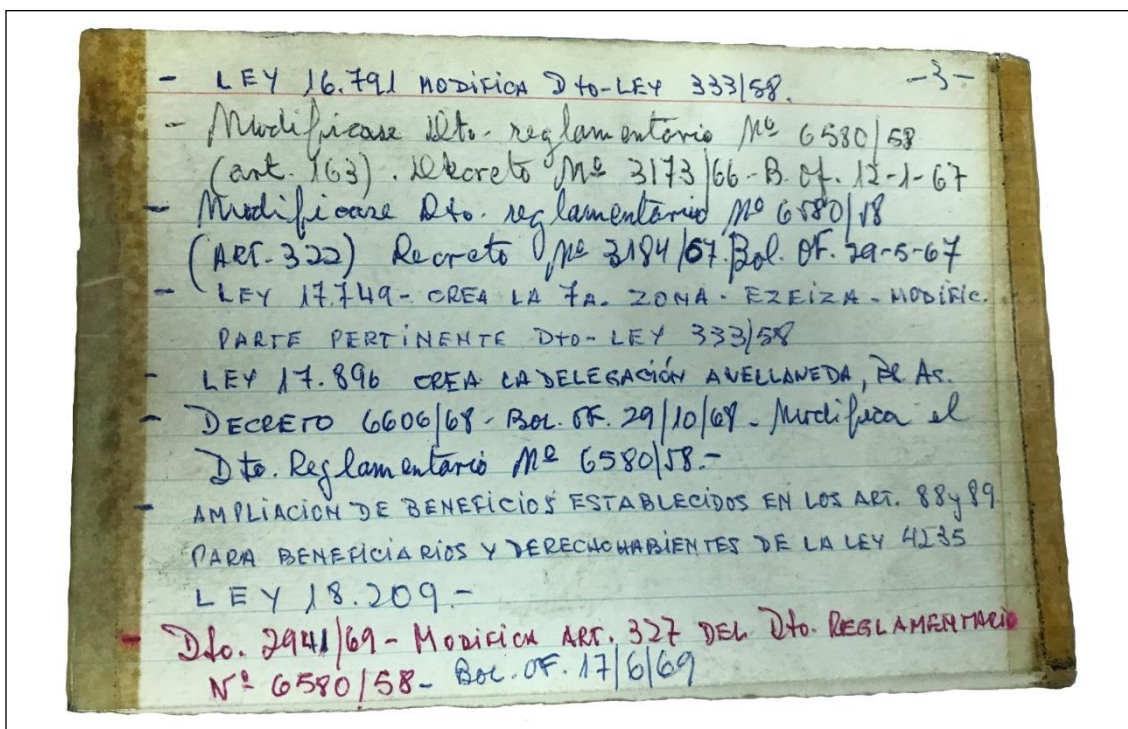 - LEY 16.791 MODIFICA Dto-LEY 333/58. -3-
- Modificase Dto. reglamentario Nº 6580/58
(art. 163). Decreto Nº 3173/66-B. Of. 12-1-67
- Modificase Dto. reglamentario Nº 6580/58
(ART. 322) Decreto Nº 3184/67. Bol. OF. 29-5-67
- LEY 17.749- CREA LA 7A. ZONA - EZEIZA - MODIFIC.
PARTE PERTINENTE Dto-LEY 333/58
- LEY 17.896 CREA LA DELEGACIÓN AVELLANEDA, Bs. As.
- DECRETO 6606/68 - BOL. OF. 29/10/68 - Modifica el
Dto. Reglamentario Nº 6580/58.-
- AMPLIACION DE BENEFICIOS ESTABLECIDOS EN LOS ART. 88 y 89
PARA BENEFICIARIOS Y DERECHOHABIENTES DE LA LEY 4235
LEY 18.209.-
- Dto. 2941/69 - MODIFICA ART. 327 DEL Dto. REGLAMENTARIO
Nº 6580/58- BOL. OF. 17/6/69